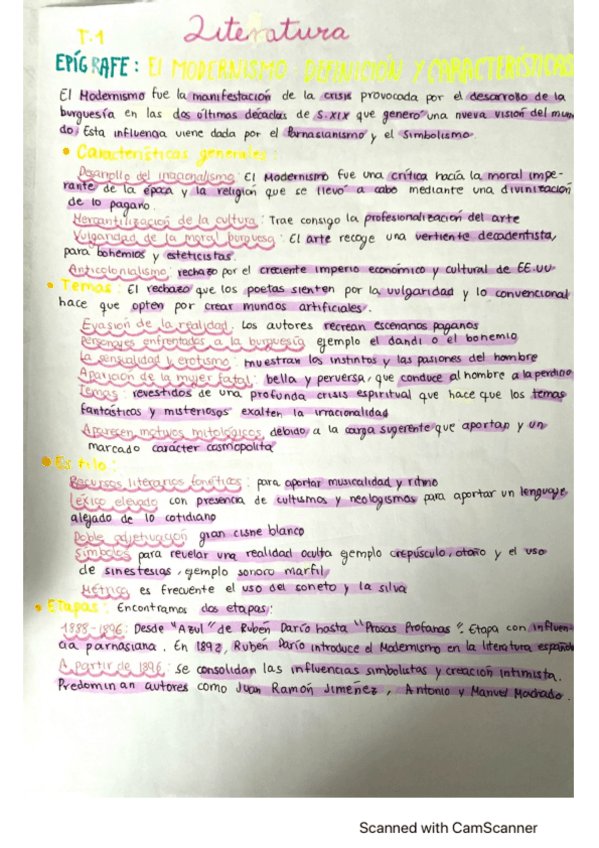 T.1 Literatura
EPÍGRAFE: El MODERNISMO: DEFINICIÓN Y CARACTERÍSTICAS
El Modernismo fue la manifestación de la crisis provocada por el desarrollo de la
burguesía en las dos últimas décadas de S.XIX que generó una nueva visión del mun
do. Esta influenga viene dada por el Parnasianismo y el Simbolismo.
• Características generales:
Desarrollo del irracionalismo: El Modernismo fue una crítica hacía la moral impe-
rante de la época y la religión que se llevó a cabo mediante una divinización
de lo pagano.
Mercantilización de la cultura: Trae consigo la profesionalización del arte
Vulgaridad de la moral burguesa: El arte recoge una vertiente decadentista,
para bohemios y esteticistas.
Anticolonialismo: rechazo por el creciente imperio económico y cultural de EE.UU
• Temas: El rechazo que los poetas sienten por la vulgaridad y lo convencional
hace que opten por crear mundos artificiales.
Evasión de la realidad. Los autores recrean escenarios paganos
Personajes enfrentados a la burguesía ejemplo el dandi o el bohemio
La sensualidad y erotismo: muestran los instintos y las pasiones del hombre
Aparicion de la mujer fatal: bella y perversa, que conduce al hombre a la perdino
Temas: revestidos de una profunda crisis espiritual que hace que los temas
fantásticos y misteriosos exalten la irracionalidad
Aparesen motivos mitológicos debido a la carga sugerente que aportan y un
marcado carácter cosmopolita
• Estilo:
Recursos literarios fonéticos: para aportar musicalidad y ritmo
Léxico elevado con presencia de cultismos y neologismos para aportar un lenguaje
alejado de lo cotidiano
Doble adjetivación gran cisne blanco
Símbolos para revelar una realidad oculta ejemplo crepúsculo, otoño y el uso
de sinestesias, ejemplo sonoro marfil
Métrica es frecuente el uso del soneto y la silva
• Etapas: Encontramos dos etapas:
1888-1896: Desde "Azul" de Rubén Darío hasta "Prosas Profanas". Etapa con influen-
cia parnasiana. En 1892, Rubén Darío introduce el Modernismo en la literatura español
A partir de 1896: se consolidan las influencias simbolistas y creación intimista.
Predominan autores como Juan Ramón Jimeñez, Antonio y Manuel Machado.
Scanned with CamScanner